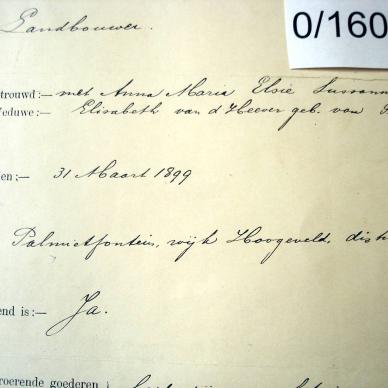 0/160
Landbouwer.
trouwd:— met Anna Maria Elsie Susanna
Veduwe:— Elisabeth van d Heever geb. van
en;— 31 Maart 1899
Palmietfontein, wijk Hoogeveld, dist
end is:— Ja.
roerende goederen